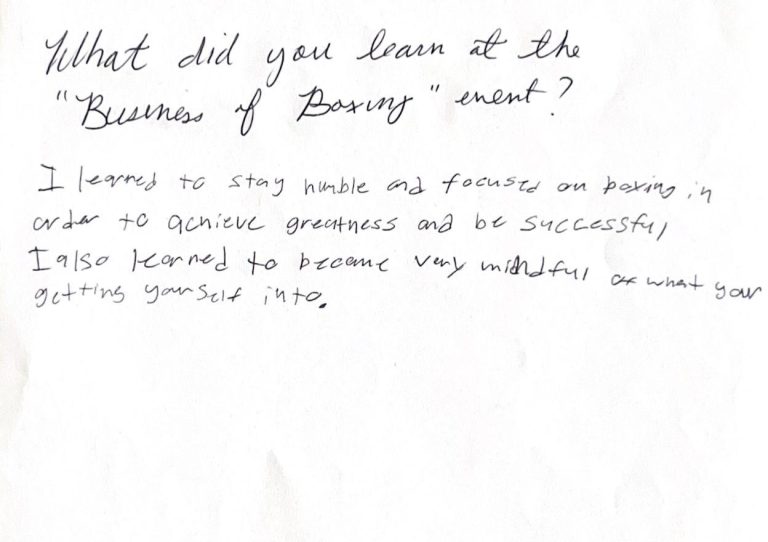 What did you learn at the
"Business of Boxing" event?
I learned to stay humble and focused on boxing in
order to achieve greatness and be successful
I also learned to become very mindful of what your
getting yourself into.